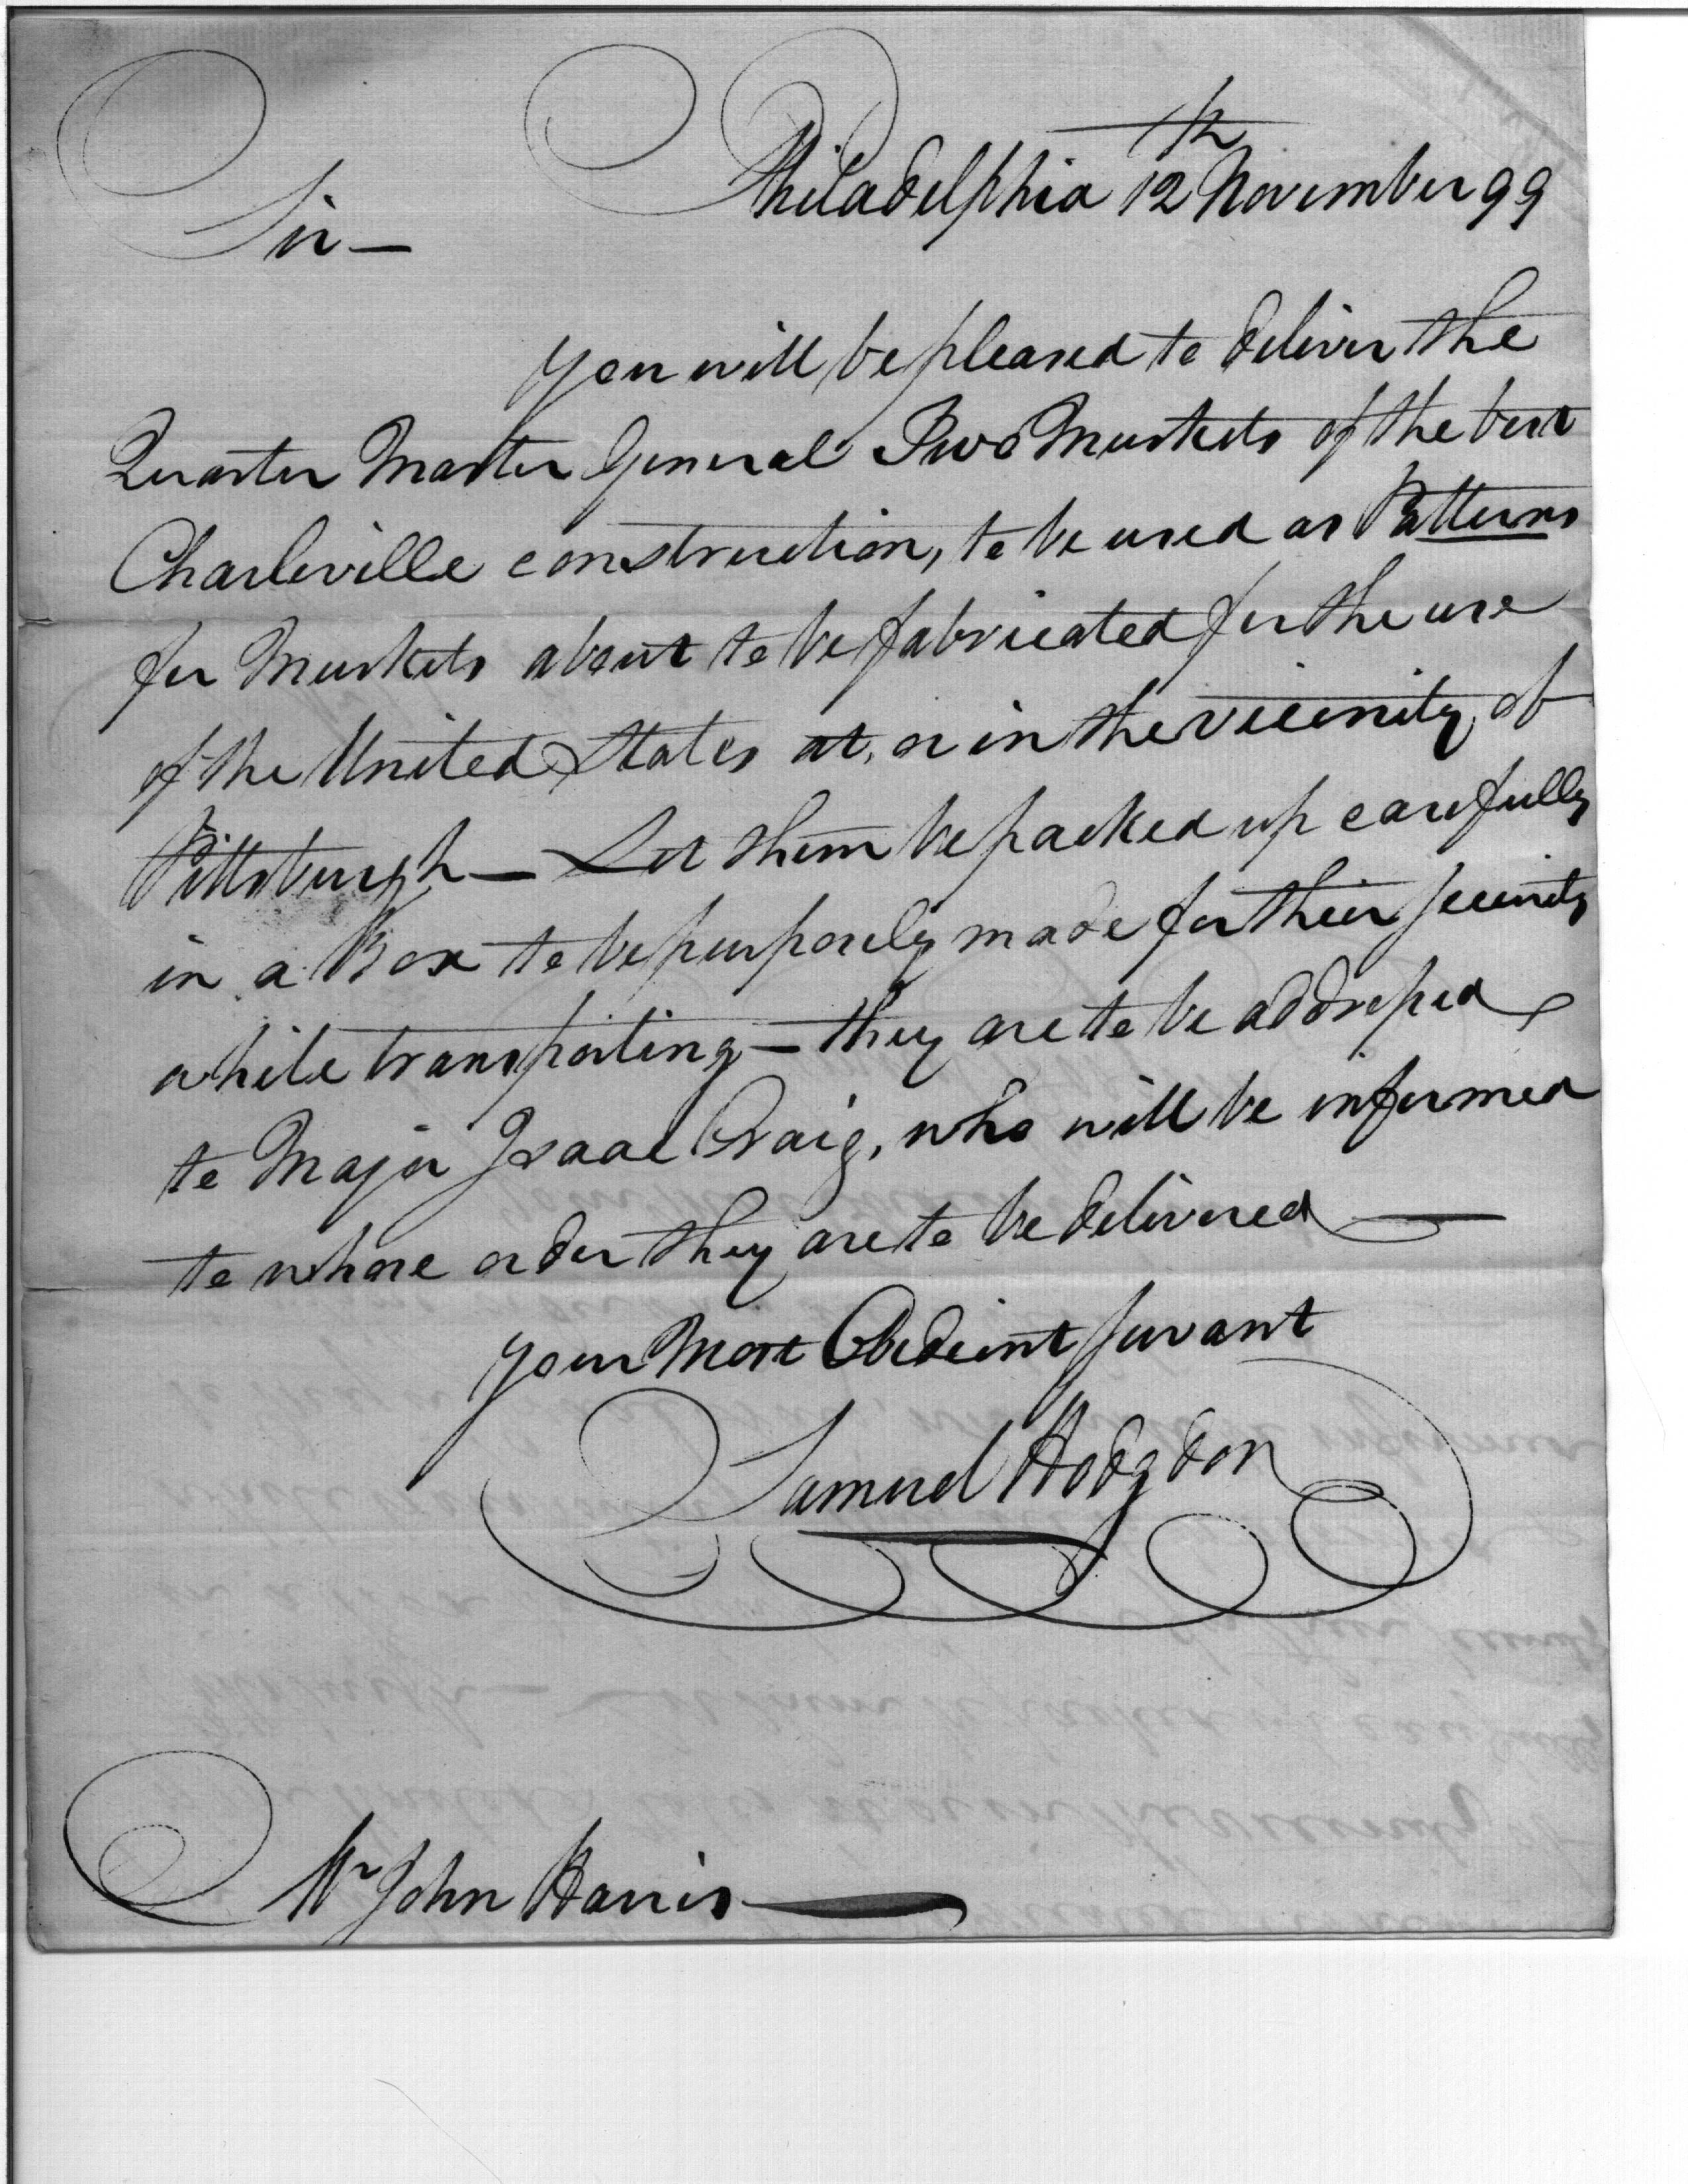 Philadelphia 12th November 99
Sir —
You will be pleased to deliver the
Quarter Master General Two Muskets of the best
Charleville construction, to be used as Patterns
for Muskets about to be fabricated for the use
of the United States at, or in the vicinity of
Pittsburgh — Let them be packed up carefully
in a Box to be purposely made for their security
while transporting — they are to be addressed
to Major Isaac Craig, who will be informed
to whose order they are to be delivered —
Your Most Obedient servant
Samuel Hodgdon
Mr John Harris —